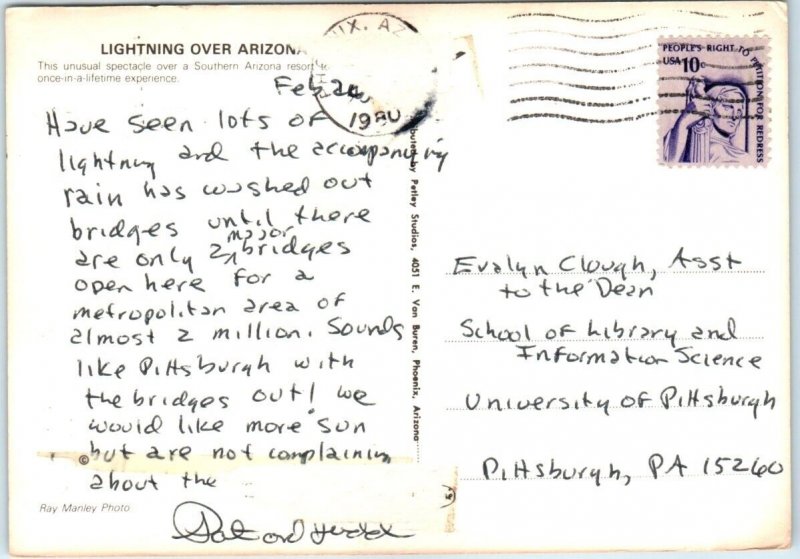 LIGHTNING OVER ARIZONA
This unusual spectacle over a Southern Arizona resort
once-in-a-lifetime experience.
Feb 24
Have seen lots of
lightning and the accompanying
rain has washed out
bridges until there
are only 2 major bridges
open here for a
metropolitan area of
almost 2 million. Sounds
like Pittsburgh with
the bridges out! We
would like more sun
but are not complaining
about the
Pat and
Ray Manley Photo
©
by Petley Studios, 4051 E. Van Buren, Phoenix, Arizona
AZ
1980
PEOPLE'S RIGHT TO PETITION FOR REDRESS
USA 10c
Evalyn Clough, Asst
to the Dean
School of Library and
Information Science
University of Pittsburgh
Pittsburgh, PA 15260